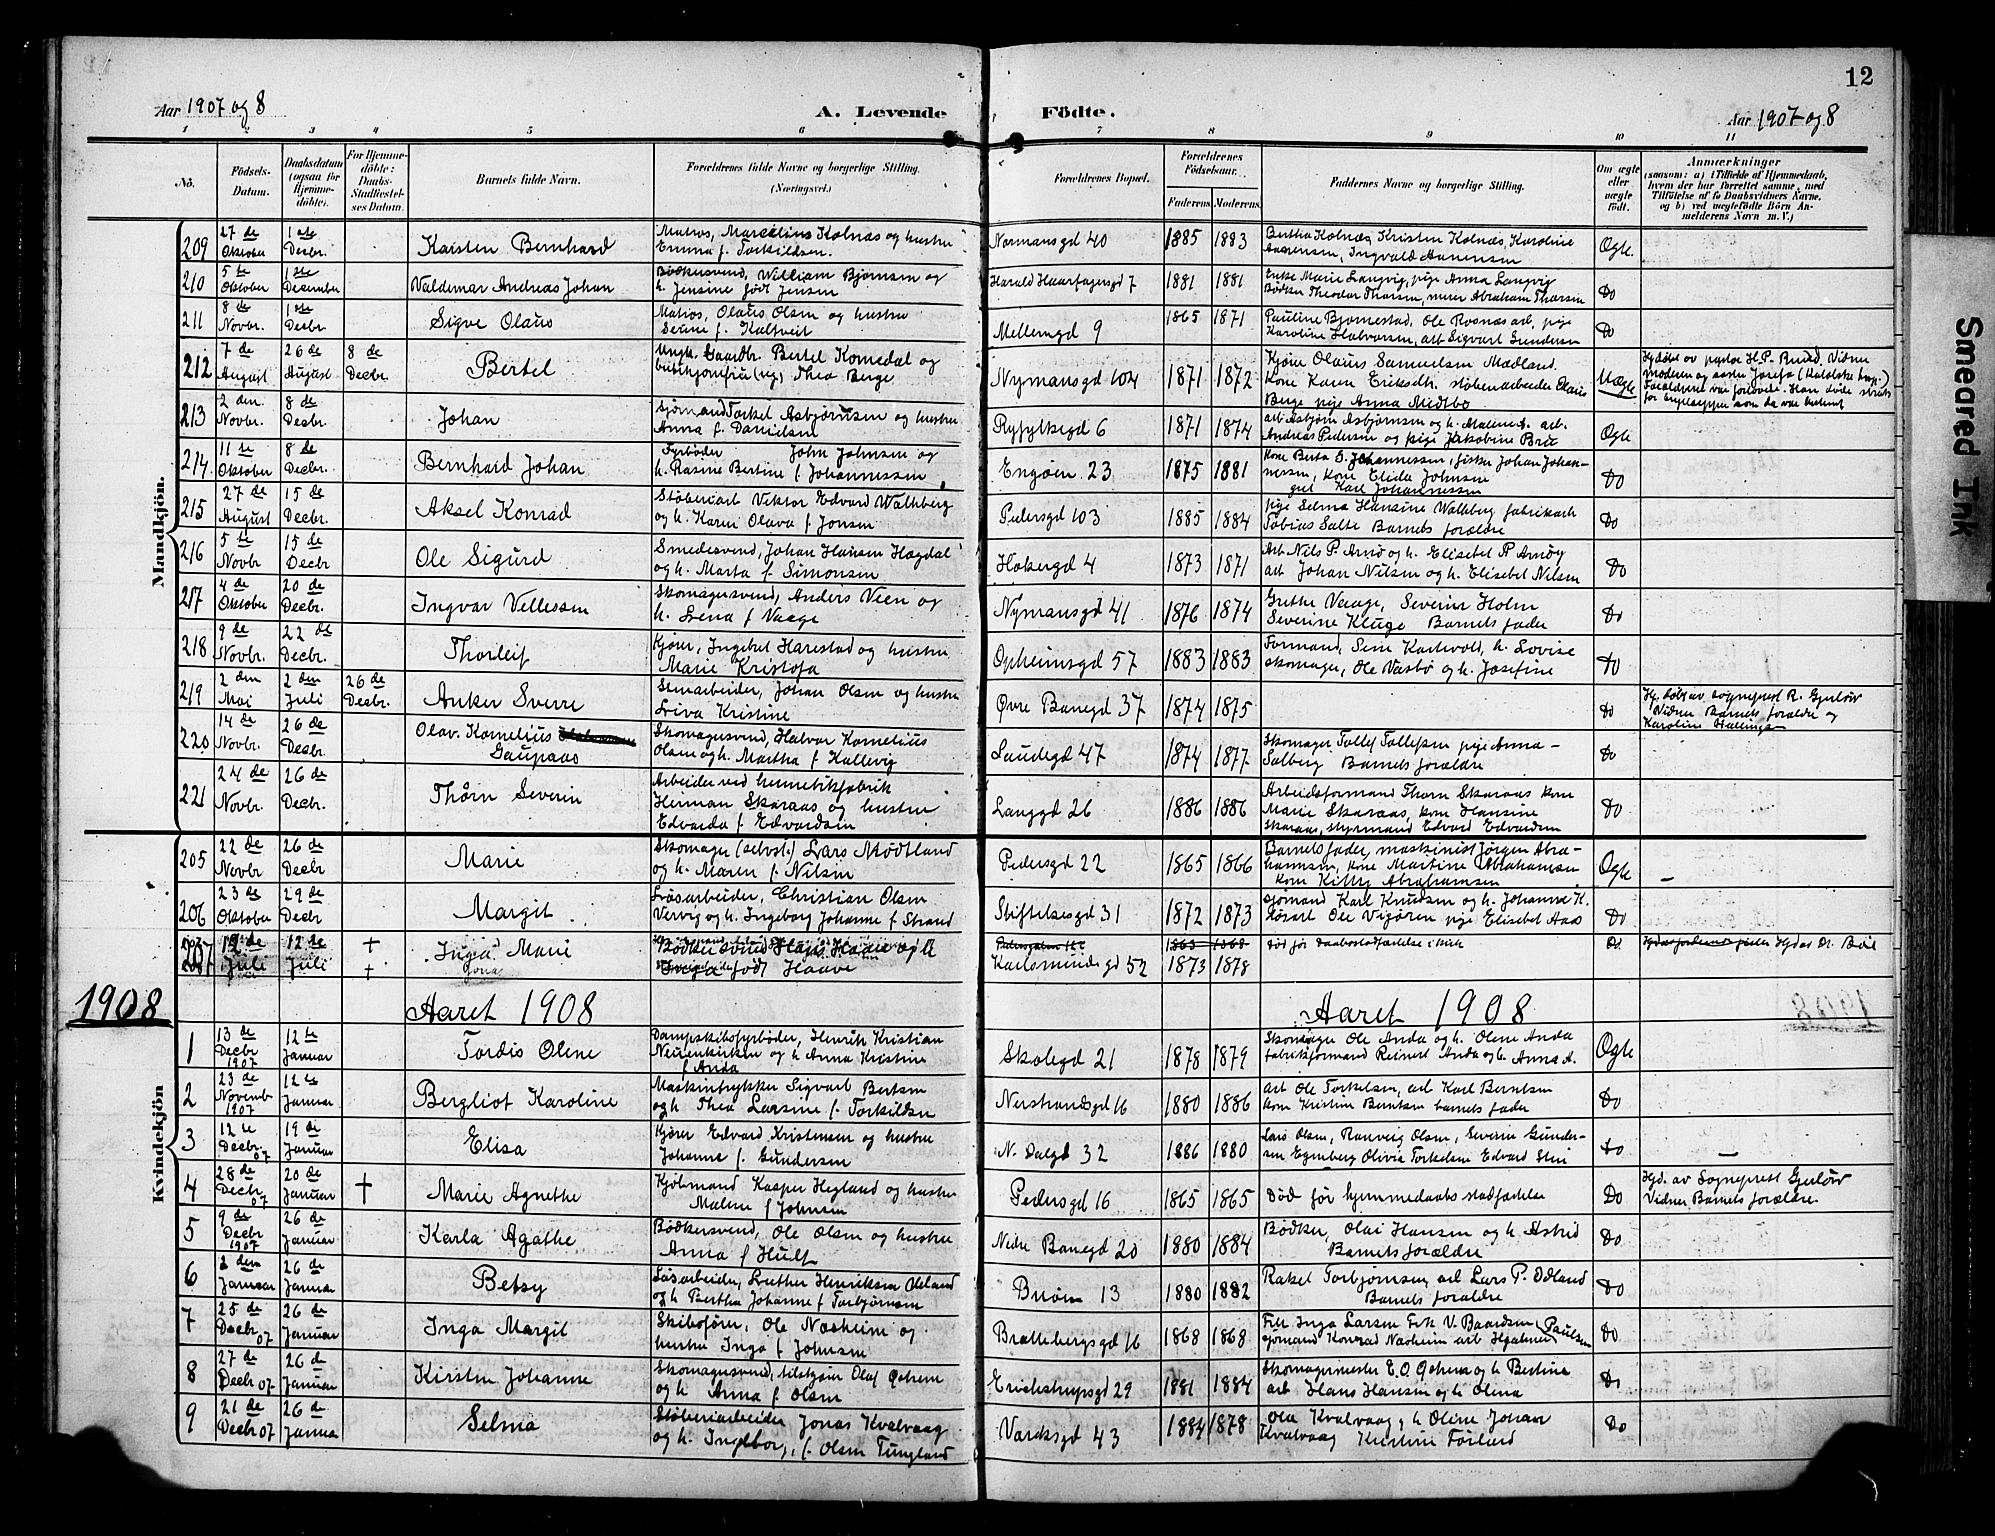 12
Aar 1907 og 8
A. Levende Födte.
Aar 1907 og 8
1 2 3 4 5 6 7 8 9 10 11
No.
Födsels-Datum.
Daabsdatum (ogsaa for Hjemmedöbte).
For Hjemmedöbte: Daabs-Stadfæstelses Datum.
Barnets fulde Navn.
Forældrenes fulde Navne og borgerlige Stilling. (Næringsvei.)
Forældrenes Bopæl.
Forældrenes Födselsaar.
Faderens. Moderens.
Faddernes Navne og borgerlige Stilling.
Om ægte eller uægte födt.
Anmærkninger (saasom: a) i Tilfælde af Hjemmedaab, hvem der har forrettet samme, med Tilföielse af to Daabsvidners Navne, og b) ved uægtefödte Börn Anmelderens Navn m. V.)
Mandkjön.
209 27 de Oktober 1ste Decbr. Karsten Bernhard Matros, Marcelius Kolnæs og hustru Emma f. Torkildsen. Normansgd 40 1885 1883 Bertha Kolnæs, Kristen Kolnæs, Karoline Aanensen, Ingvald Aanensen Ægte.
210 5 te Oktober 1ste December Valdemar Andreas Johan Bødkersvend, William Bjørnsen og h. Jensine født Jensen Harald Haarfagersgd 7 1881 1881 Enke Marie Langvig, pige Anna Langvig Bødker Theodor Thorsen, murer Abraham Thorsen Do
211 8 de Novbr. 1ste Decbr. Sigve Olaus Matros, Olaus Olsen og hustru f. Kaltveit Mellemgd 9 1865 1871 Pauline Bjørnestad, Ole Rosnæs arb, pige Karoline Halvorsen, arb Sigvart Gundersen Do
212 7 de August 26 de August 8 de Decbr. Bertel Ungk. Gaardbr. Bertel Komsdal og butikjomfru (ug) Thea Berge Nymansgd 104 1871 1872 Kjører Olaus Samuelsen Madland Kone Karen Eriksdtr. støberiarbeider Olaus Berge pige Anna Midtbø Uægte
213 2 den Novbr. 8 de Decbr. Johan Sjømand Torkel Asbjørnsen og hustru Anna f. Danielsen Ryfylkegd 6 1871 1874 arb Asbjørn Asbjørnsen og h. Malene A. arb. Andreas Pedersen og pige Jakobine Brie Ægte
214 11 te Oktober 8 de Decbr. Bernhard Johan Fyrbøder John Johnsen og h. Rasine Bertine f. Johannessen Engøen 23 1875 1881 Kone Berta E. Johannessen, fisker Johan Johannessen, kone Elida Johnsen gut Karl Johannessen Do
215 27 de August 15 de Decbr. Aksel Konrad Støberiarb Viktor Edvard Wallberg og h. Karen Olava f. Jensen Pedersgd 103 1885 1884 pige Selma Hansine Walleberg fabrikarb Tobias Salte Barnets forældre Do
216 5 te Novbr 15 de Decbr Ole Sigurd Smedesvend, Johan Hansen Hægdal og h. Marta f. Simonsen Høkergd 4 1873 1871 Arb Nils P. Arnø og h. Elisebet P Arnøy arb Johan Nilsen og h. Elisebet Nilsen Do
217 4 de Oktober 20 de Decbr. Ingvar Vellessen Skomagersvend, Anders Veen og h. Lena f Vaage Nymansgd 41 1876 1874 Grethe Vaage, Severin Holm Severine Kluge Barnets fader Do
218 9 de Novbr. 22 de Decbr. Thorleif Kjører, Ingebret Harestad og hustru Marie Kristofa Opheimsgd 57 1883 1883 Formand, Sem Karlsvold, h. Lovise skomager, Ole Vasbø og h. Josefine Do
219 2 den Mai 2 den Juli 26 de Decbr. Anker Sverre Stenarbeider, Johan Olsen og hustru Liva Kristine Øvre Banegd 37 1874 1875 Do Hj. døbt av sogneprest R. Gjerløw Vidner Barnets forældre og Karoline Hallinga
220 14 de Novbr. 26 de Decbr. Olav Kornelius Gaupaas Skomagersvend, Halvor Kornelius Olsen og h. Martha f. Kallevig Saudegd 47 1874 1877 Skomager Tollef Tollefsen pige Anna Salberg Barnets forældre Do
221 24 de Novbr. 26 de Decbr. Thörn Severin Arbeider ved hermetikfabrik Herman Skaraas og hustru Edvarda f. Edvardsen Langgd 26 1886 1886 Arbeidsformand Thorn Skaraas kone Marie Skaraas, kone Hansine Skaraas, styrmand Edvard Edvardsen Do
Kvindekjön
205 22 de Novbr 26 de Decbr Marie Skomager (selvst.) Lars Mødtland og h. Maren f. Nilsen Pedersgd 22 1865 1866 Barnets fader, maskinist Jørgen Abrahamsen, kone Martine Abrahamsen kone Kitty Abrahamsen Ægte
206 23 de Oktober 29 de Decbr Margit Løsarbeider, Christian Olsen Vervig og h. Ingeborg Johanne f Strand Stiftelsesgd 31 1872 1873 sjømand Karl Knudsen og h. Johanne K. Løsarb Ole Vigøren pige Elisebet Aas Do
207 12 de Juli 12 de Juli † Inga Marie Bødkersvend Hans Haave og h Inga født Haave Karlsminnegd 52 1873 1878 død før daabsstadfæstelse i kirke
1908
Aaret 1908
Aaret 1908
1 13 de Decbr 1907 12 te Januar Tordis Olene Dampskibsfyrbøder, Henrik Kristian Neuenkirken og h Anna Kristine f Anda Skolegd 21 1878 1879 Skomager Ole Anda og h. Olene Anda fabrikformand Reinert Anda og h. Anna A. Ægte
2 23 de Novemb 1907 12 te Januar Bergliot Karoline Maskintrykker Sigvart Berntsen og h Thea Larsine f. Torkildsen Nerstrandsgd 16 1880 1886 arb Ole Torkelsen, arb Karl Berntsen kone Kristine Berntsen barnets fader Do
3 12 te Decbr 07 19 de Januar Elisa Kjører Edvard Kristensen og hustru Johanne f. Gundersen N. Dalgd 32 1886 1880 Lars Olsen, Ranveig Olsen, Severin Gundersen Egenberg Olivia Torkelsen Edvard Stni Do
4 28 de Decbr 07 20 de Januar † Marie Agnethe Kjøbmand Kasper Hegland og hustru Malene f Johnsen Pedersgd 16 1865 1865 Død før hjemmedaabs stadfæstelse Do Hjd. av Sogneprest Gjerløw Vidner Barnets forældre
5 9 de Decbr 1907 26 de Januar Karla Agathe Bødkersvend, Ole Olsen og hustru Anna f Hult Nedre Banegd 20 1880 1884 Bødker, Olai Hansen og h Astrid Barnets forældre Do
6 2 den Januar 26 de Januar Betsy Løsarbeider, Luther Henriksen Ueland og h Bertha Johanne f Torbjørnsen Brøen 13 1880 1882 Rakel Torbjørnsen, arb Lars P. Odland Barnets forældre Do
7 25 de Decbr 07 26 de Januar Inga Margit Skibsfører, Ole Næsheim og hustru Inga f Johnsen Brattebergsgd 16 1868 1868 Frk Inga Larsen Frk V. Baardsen sjømand Konrad Næsheim arb Hjalmar Paulsen Do
8 27 de Decbr 07 26 de Januar Kirsten Johanne Skomagersvend, tilskjærer Olaf Qchem og h Anna f Olsen Erichstrupsgd 29 1881 1884 Skomagermester E.O. Qchem og h Bertine arb Hans Hansen og h Olena Do
9 21 de Decbr 07 26 de Janua Selma Støberiarbeider Jonas Kvalvaag og h. Ingeborg, f. Olsen Tungland Vardesgd 43 1884 1878 Ola Kvalvaag, h Oline Johan Kvalvaag Kristine Førland Do
Smeared Ink